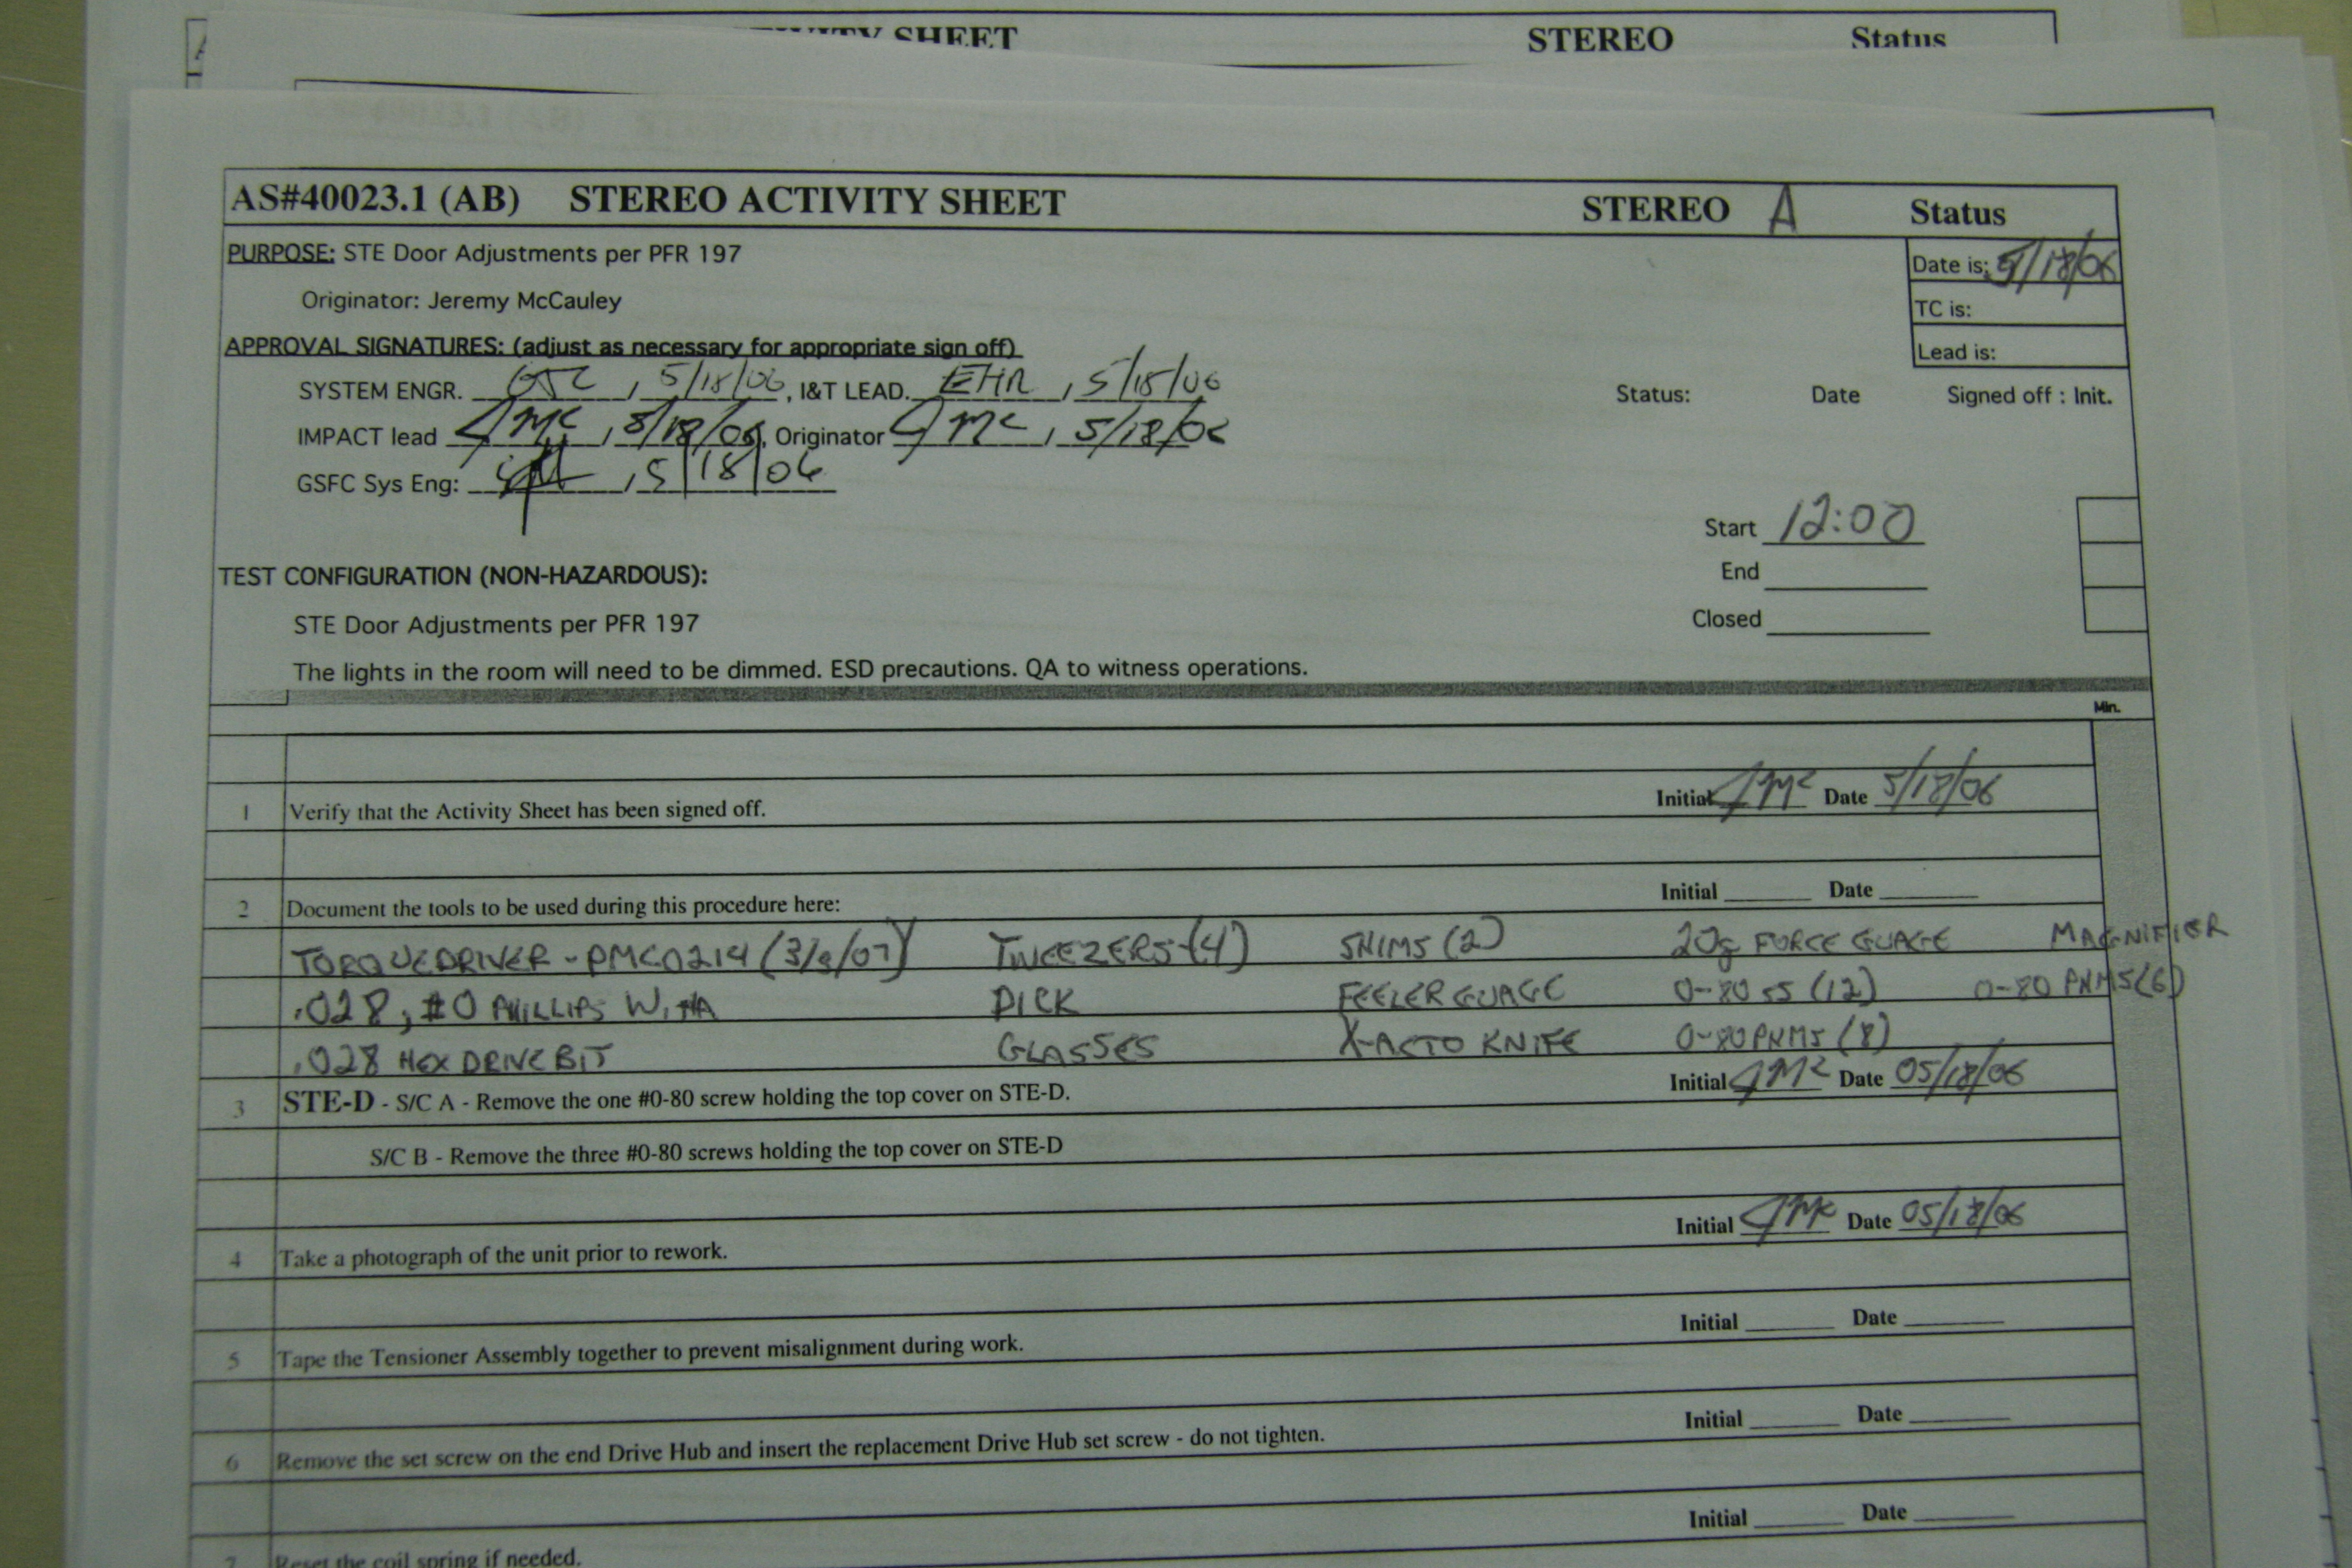 VITY SHEET STEREO Status
AS#40023.1 (AB) STEREO ACTIVITY SHEET STEREO A Status
PURPOSE: STE Door Adjustments per PFR 197
Date is: 5/18/06
Originator: Jeremy McCauley
TC is:
APPROVAL SIGNATURES: (adjust as necessary for appropriate sign off)
Lead is:
SYSTEM ENGR. , 5/18/06, I&T LEAD. EHR, 5/18/06
Status: Date Signed off : Init.
IMPACT lead JMC, 5/18/06, Originator JMC, 5/18/06
GSFC Sys Eng: , 5/18/06
Start 12:00
TEST CONFIGURATION (NON-HAZARDOUS):
End
STE Door Adjustments per PFR 197
Closed
The lights in the room will need to be dimmed. ESD precautions. QA to witness operations.
Min.
1 Verify that the Activity Sheet has been signed off. Initial JMC Date 5/18/06
2 Document the tools to be used during this procedure here: Initial Date
TORQUEDRIVER - PMC0214 (3/8/07) TWEEZERS (4) SHIMS (2) 20g FORCE GUAGE MAGNIFIER
.028, #0 PHILLIPS WIHA PICK FEELER GUAGE 0-80 SS (12) 0-80 PHMS (6)
.028 HEX DRIVE BIT GLASSES X-ACTO KNIFE 0-80 PHMS (8)
3 STE-D - S/C A - Remove the one #0-80 screw holding the top cover on STE-D. Initial JMC Date 05/18/06
S/C B - Remove the three #0-80 screws holding the top cover on STE-D
4 Take a photograph of the unit prior to rework. Initial JMC Date 05/18/06
5 Tape the Tensioner Assembly together to prevent misalignment during work. Initial Date
6 Remove the set screw on the end Drive Hub and insert the replacement Drive Hub set screw - do not tighten. Initial Date
7 Reset the coil spring if needed. Initial Date